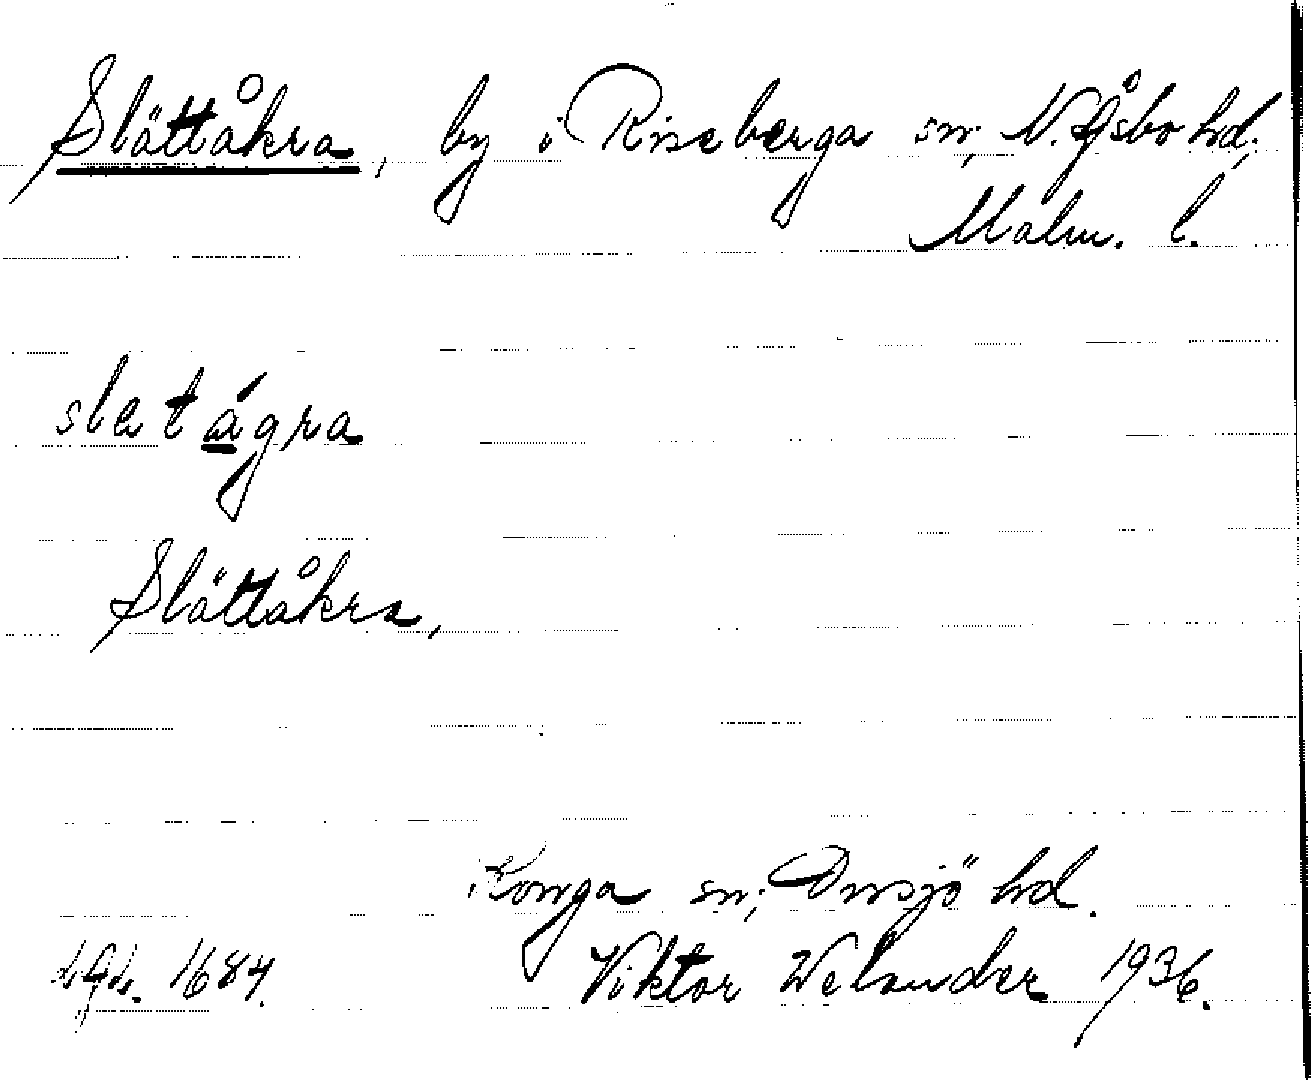 Slättåkra, by i Riseberga sn; N. Åsbo hd;
Malm. l.
slatágra
Slättåkra,
Konga sn; Onsjö hd.
1684. Viktor Welander 1936.